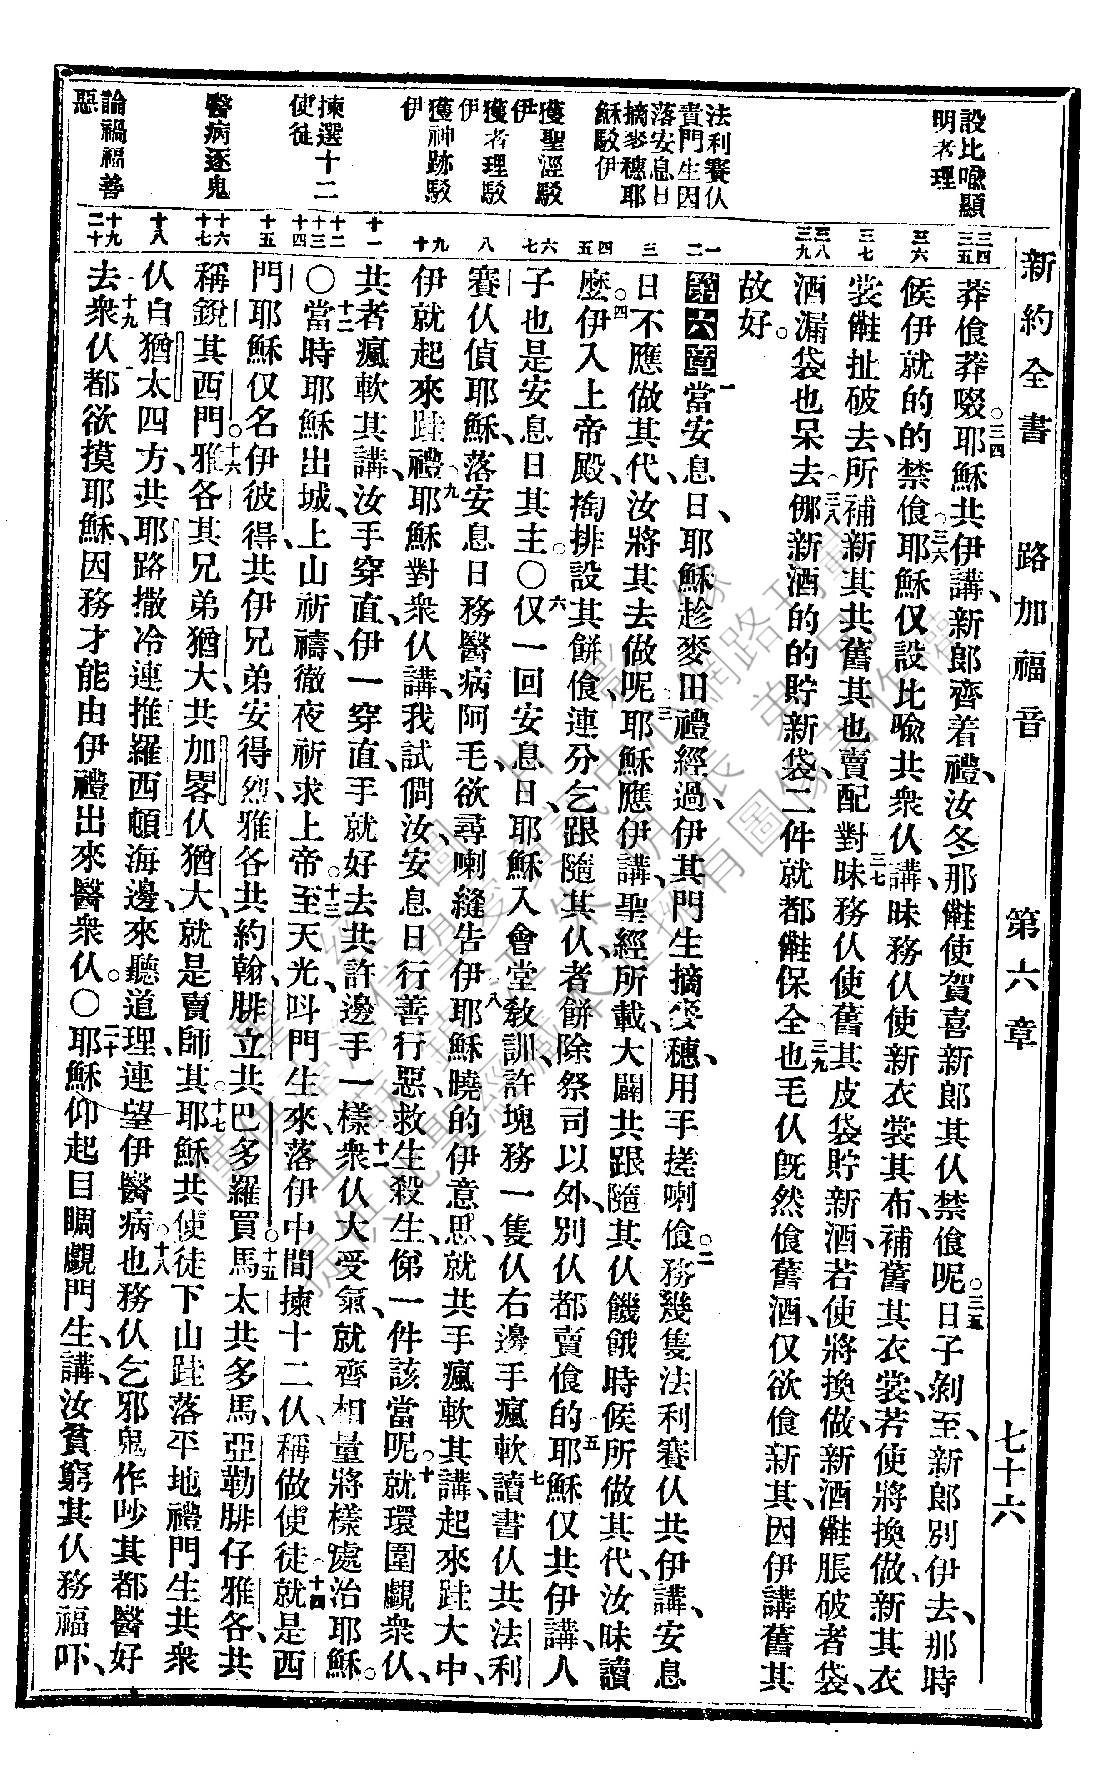 新約全書 路加福音 第六章 七十六
設比喻顯
明者理
法利賽仏
責門生因
落安息日
摘麥穗耶
穌駁伊
獲聖涇駁
伊
獲者理駁
伊
獲神跡駁
伊
揀選十二
使徒
醫病逐鬼
論禍福善
惡
三四
三五
三六
三七
三八
三九
一
二
三
四
五
六
七
八
九
十
十一
十二
十三
十四
十五
十六
十七
十八
十九
二十
莽食莽啜。三四耶穌共伊講、新郎齊着禮、汝冬那𣍐使賀喜新郎其仏禁飡呢。三五日子剝至、新郎別伊去、那時
候伊就的的禁飡。三六耶穌仅設比喻共衆仏講、昧務仏使新衣裳其布、補舊其衣裳、若使將換做、新其衣
裳𣍐扯破去、所補新其共舊其也賣配對。三七昧務仏使舊其皮袋貯新酒、若使將換做、新酒𣍐脹破者袋、
酒漏袋也呆去。三八那新酒的的貯新袋、二件就都𣍐保全。三九也毛仏旣然飡舊酒、仅欲飡新其、因伊講舊其
故好。
第六章 一當安息日、耶穌趁麥田禮經過、伊其門生摘麥穗、用手搓喇飡。二務幾隻法利賽仏共伊講、安息
日不應做其代、汝將其去做呢。三耶穌應伊講、聖經所載、大闢共跟隨其仏饑餓時候所做其代、汝昧讀
麼。四伊入上帝殿、掏排設其餅飡、連分乞跟隨其仏、者餅除祭司以外、別仏都賣飡的。五耶穌仅共伊講、人
子也是安息日其主。○六仅一回安息日、耶穌入會堂教訓、許塊務一隻仏右邊手瘋軟、七讀書仏共法利
賽仏偵耶穌、落安息日務醫病阿毛、欲尋喇縫告伊。八耶穌曉的伊意思、就共手瘋軟其講、起來跬大中、
伊就起來跬禮。九耶穌對衆仏講、我試問汝、安息日行善行惡、救生殺生、俤一件該當呢。十就環圍覷衆仏、
共者瘋軟其講、汝手穿直、伊一穿直、手就好去共許邊手一樣。十一衆仏大受氣、就齊相量將樣處治耶穌。
○十二當時耶穌出城、上山祈禱、徹夜祈求上帝。十三至天光、呌門生來、落伊中間揀十二仏、稱做使徒。十四就是西
門、耶穌仅名伊彼得、共伊兄弟安得烈、雅各共約翰、腓立共巴多羅買。十五馬太共多馬、亞勒腓仔雅各、共
稱銳其西門。十六雅各其兄弟猶大、共加畧仏猶大、就是賣師其。十七耶穌共使徒下山、跬落平地禮、門生共衆
仏自猶太四方、共耶路撒冷、連推羅西頓海邊、來聽道理、連望伊醫病。十八也務仏乞邪鬼作吵其、都醫好
去。十九衆仏都欲摸耶穌、因務才能由伊禮出來醫衆仏。○二十耶穌仰起目睭覷門生講、汝貧窮其仏務福吓、